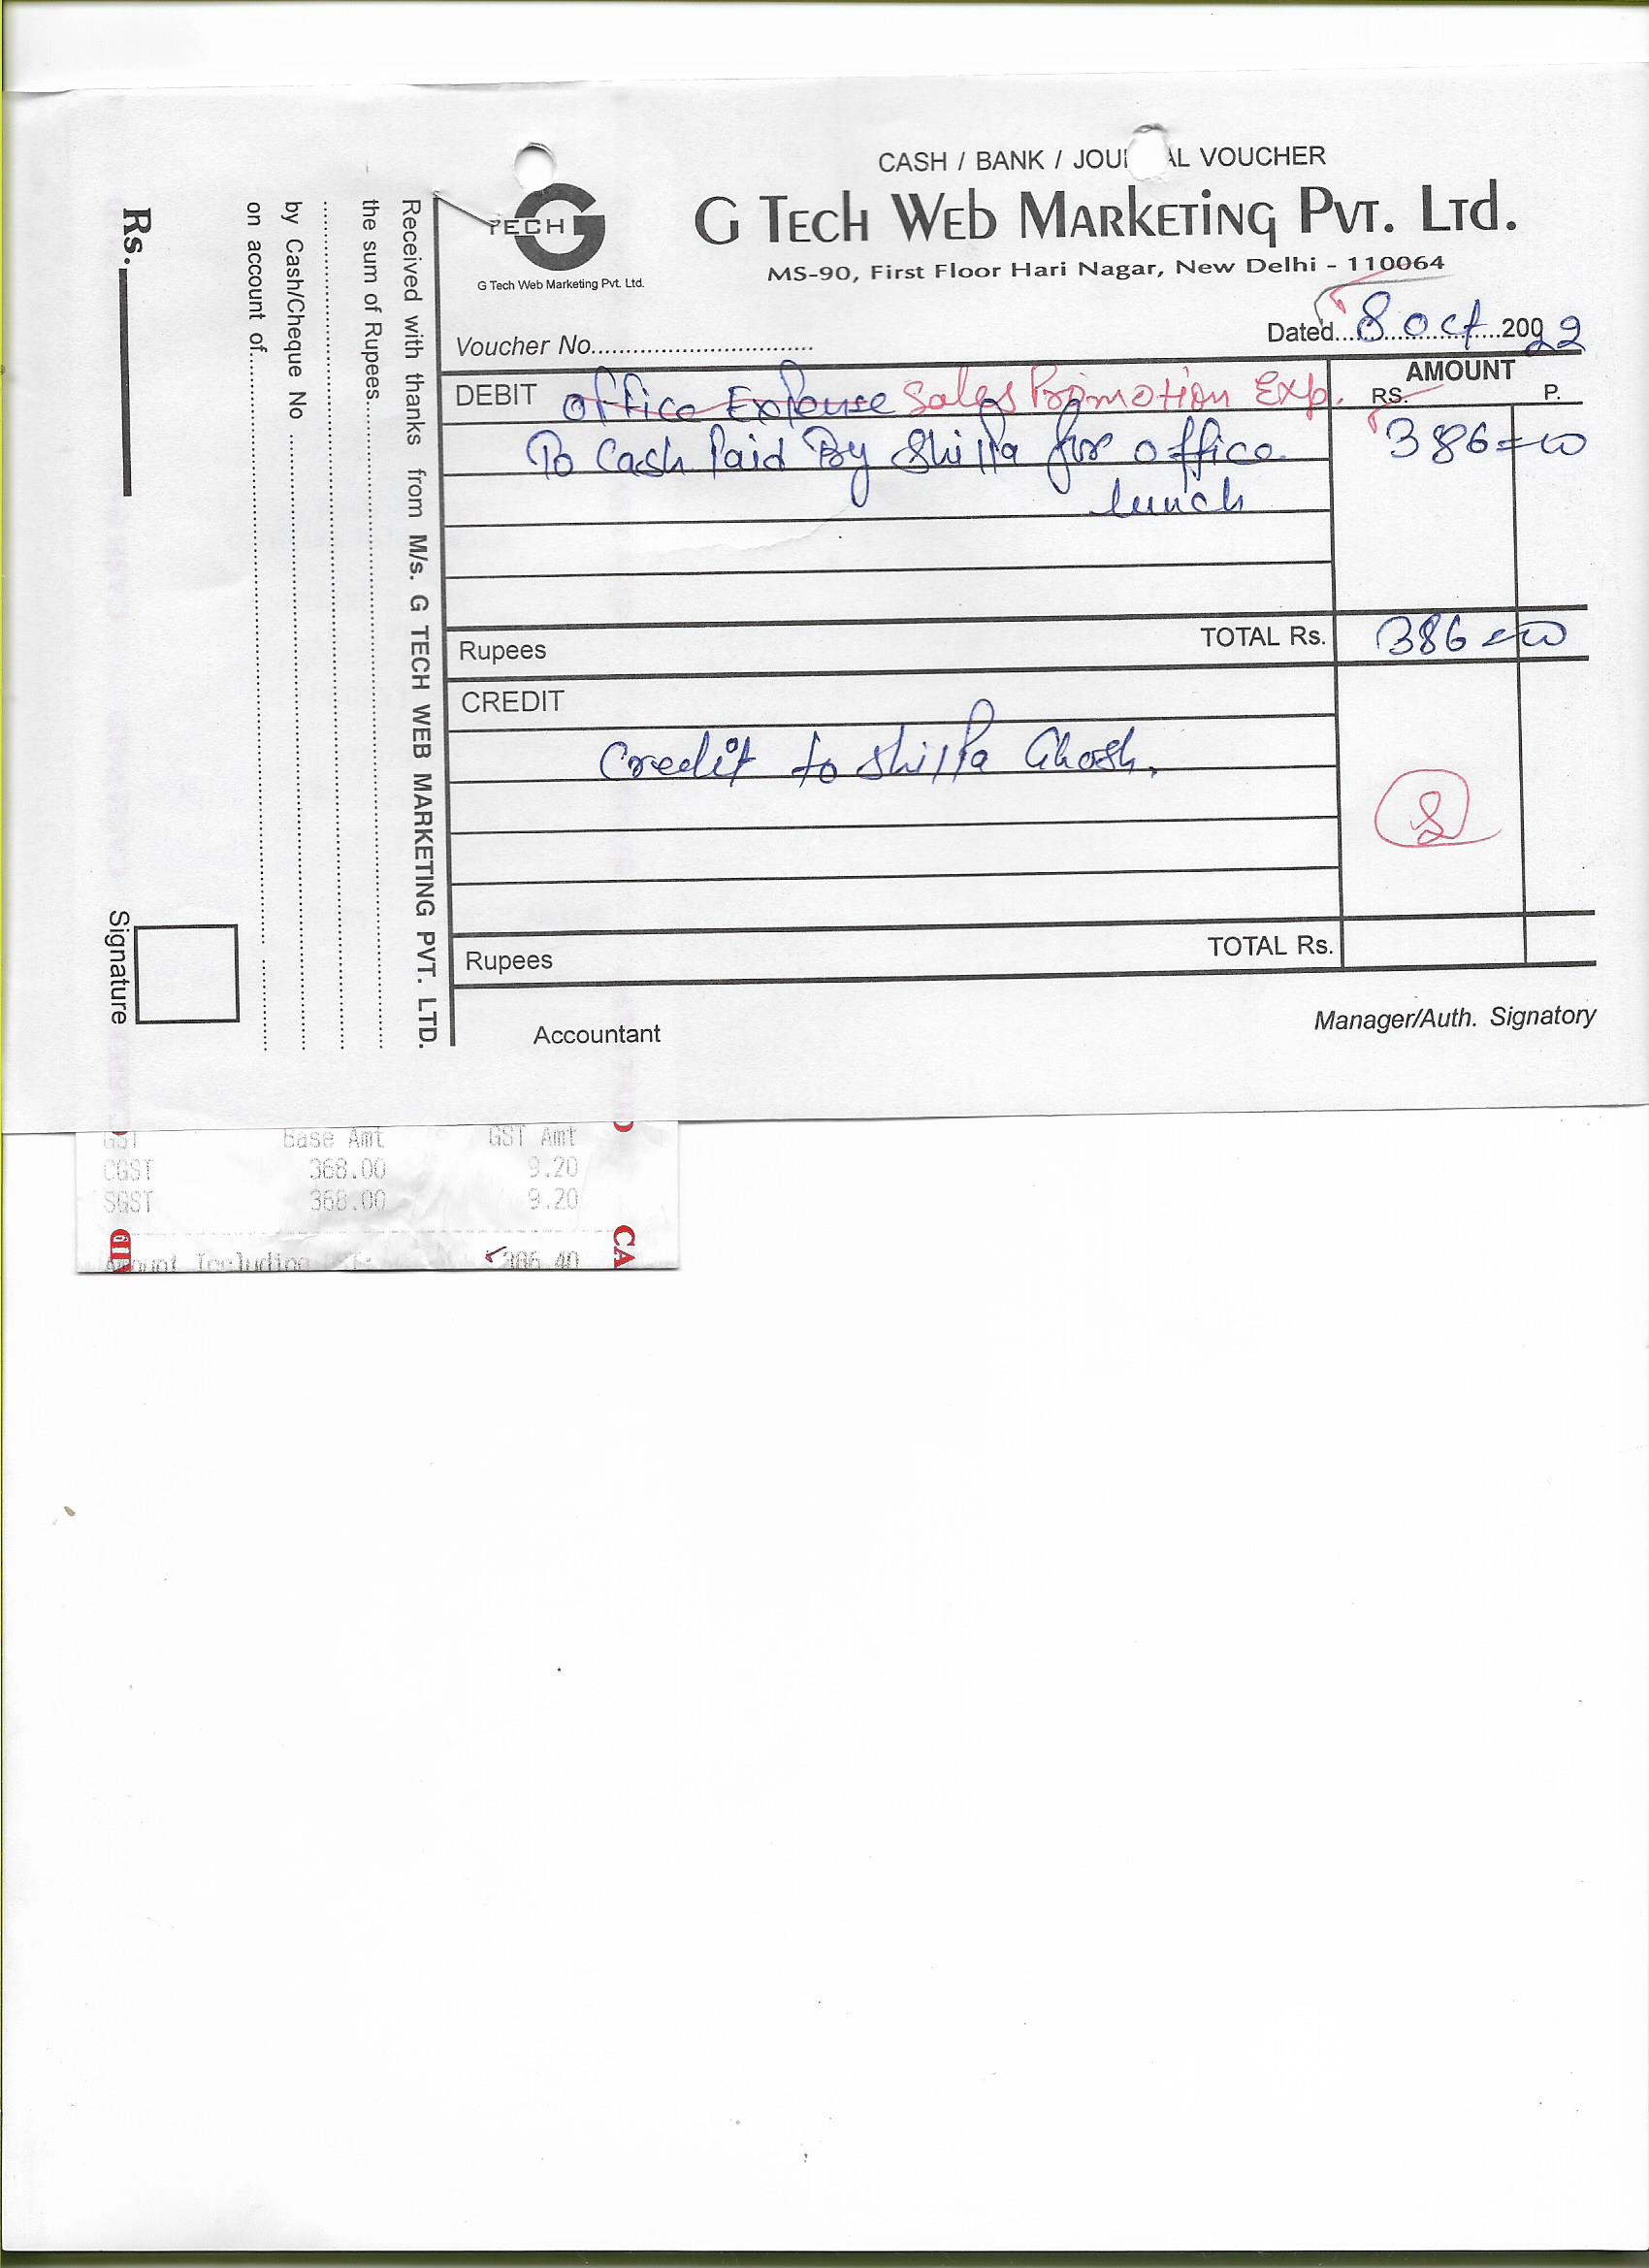 CASH / BANK / JOU AL VOUCHER
TECH G
G Tech Web Marketing Pvt. Ltd.
G Tech Web Marketing Pvt. Ltd.
MS-90, First Floor Hari Nagar, New Delhi - 110064
Voucher No..............................
Dated...8 Oct...20022
DEBIT Office Expense Sales Promotion Exp.
AMOUNT
RS. P.
To Cash Paid By Shilpa for office 386=00
lunch
Rupees TOTAL Rs. 386=00
CREDIT
Credit to Shilpa Ghosh.
Rupees TOTAL Rs.
Accountant Manager/Auth. Signatory
Received with thanks from M/s. G TECH WEB MARKETING PVT. LTD.
the sum of Rupees
by Cash/Cheque No
on account of
Rs.
Signature
GST Base Amt GST Amt
CGST 368.00 9.20
SGST 368.00 9.20
Amount Including 386.40
CA